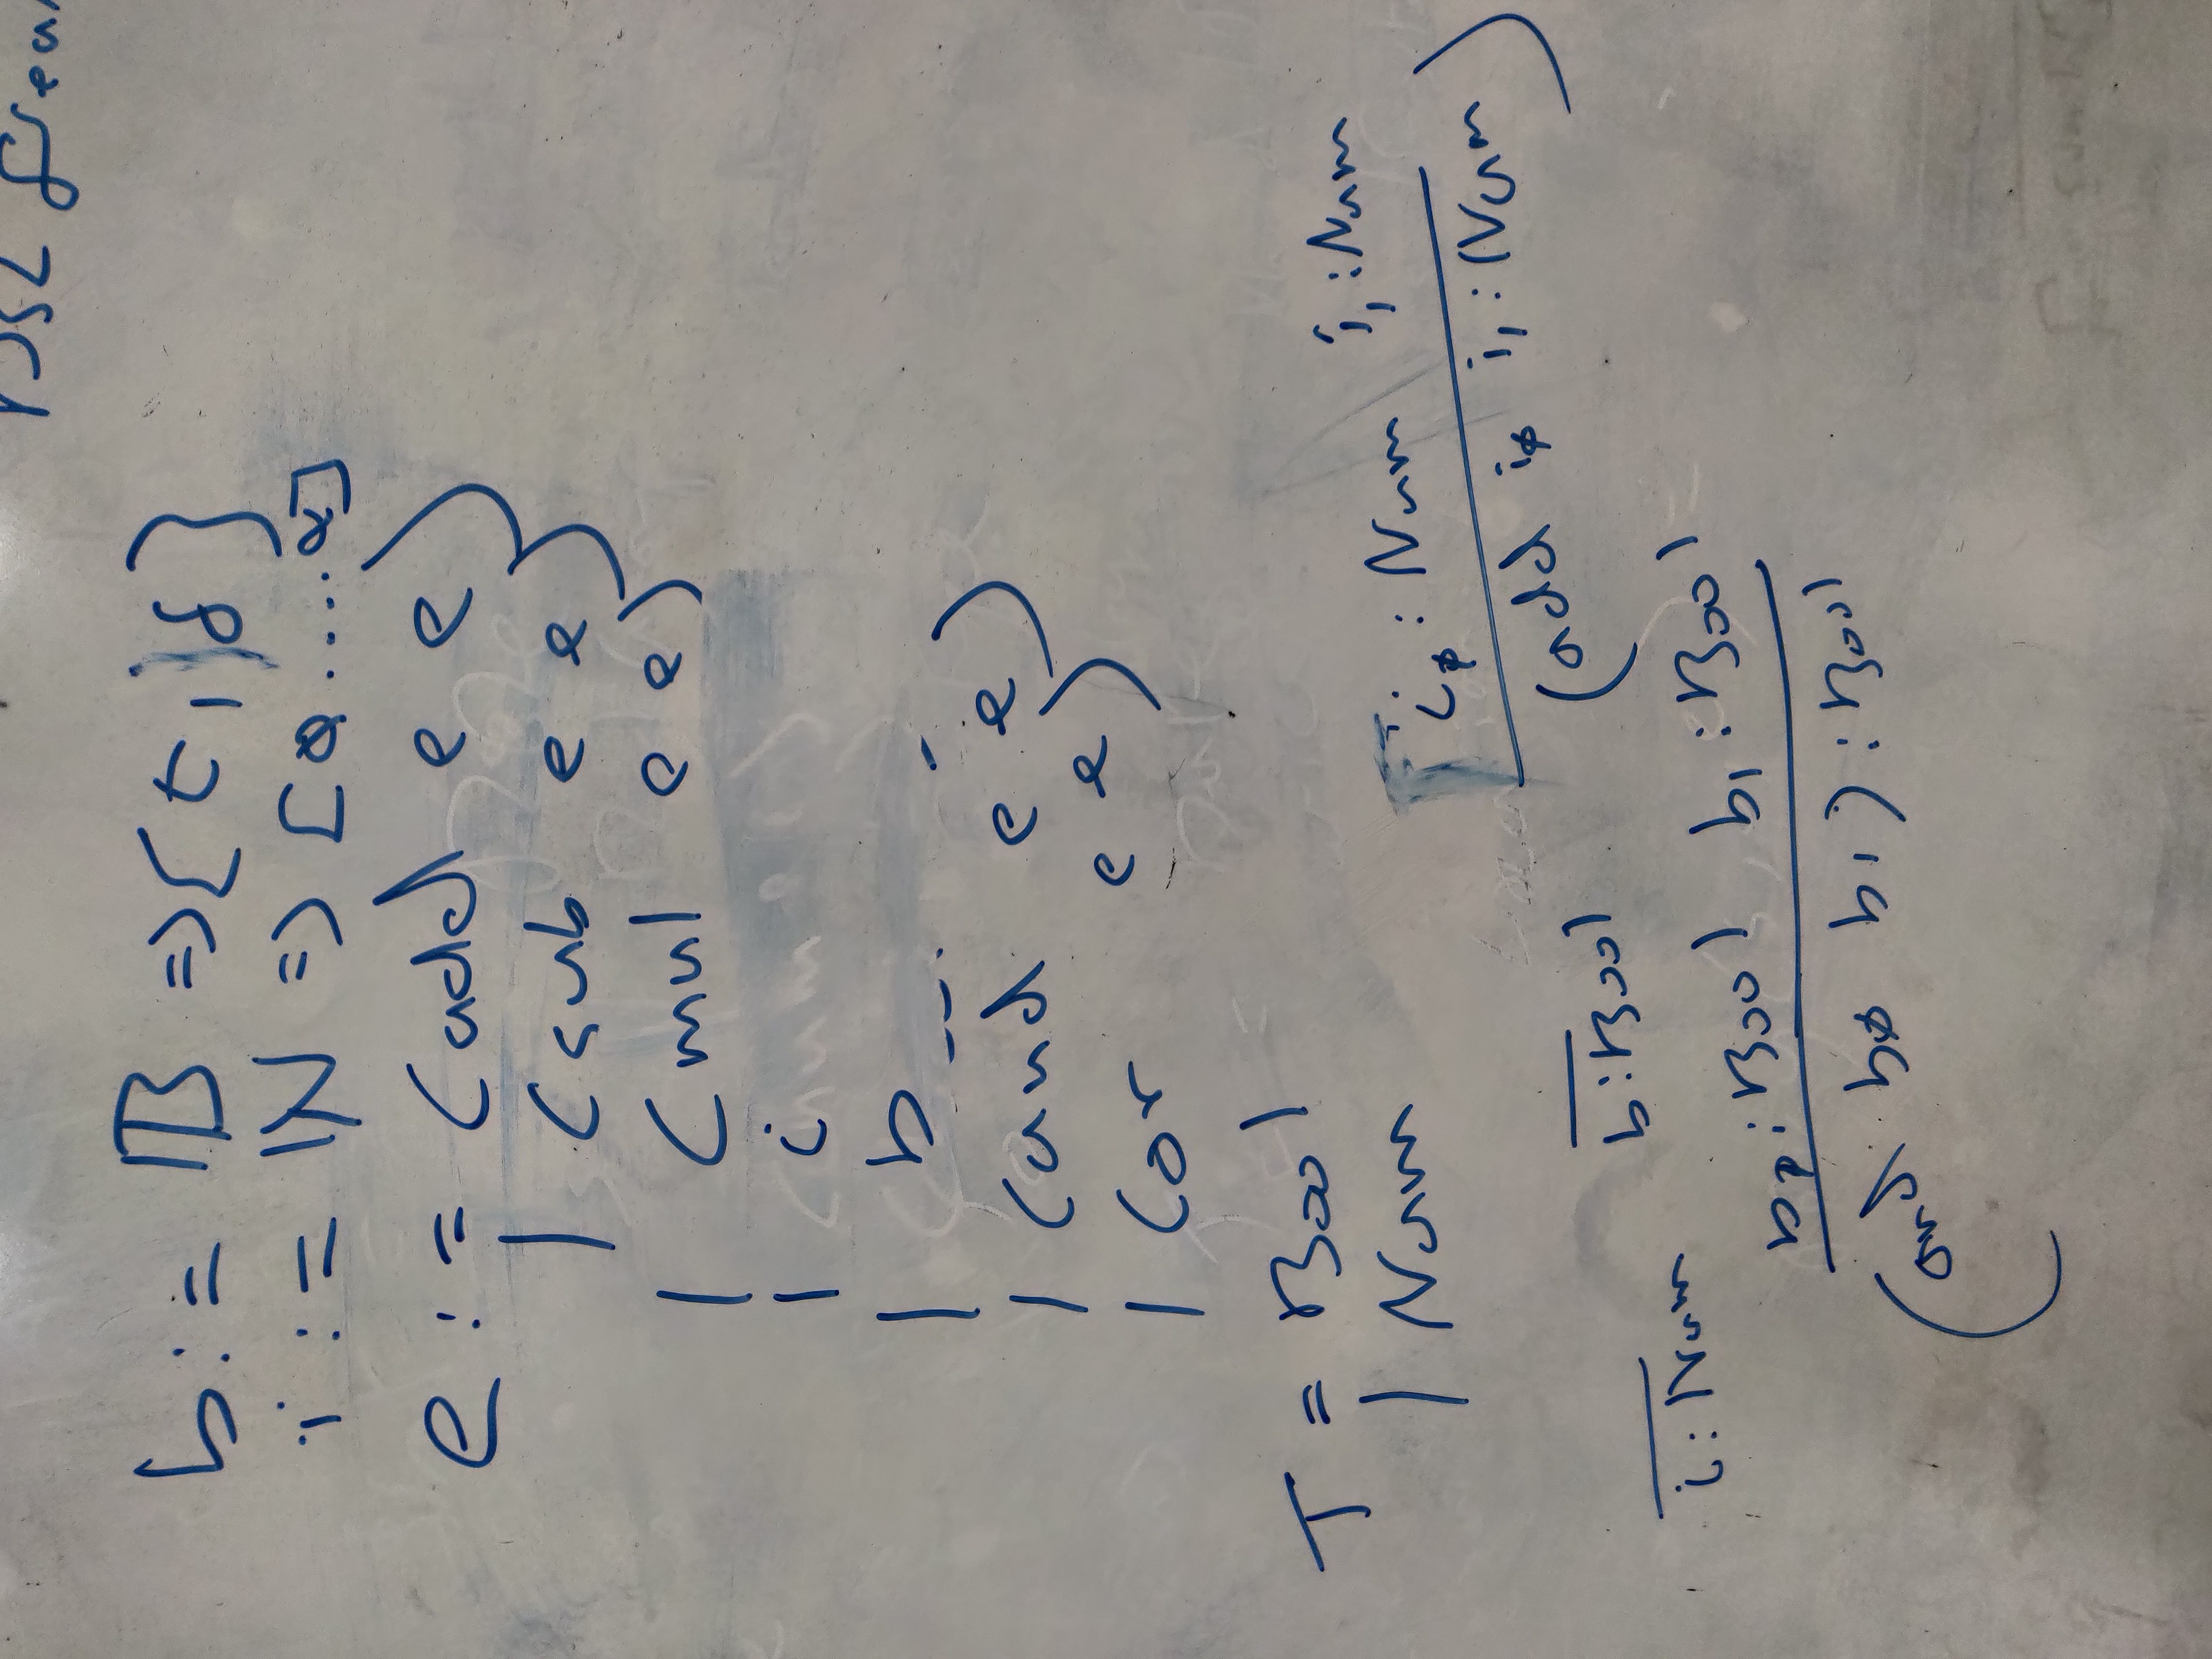 DSL
b := 𝔹 => { t, f }
i := ℕ => [0....
e := (add e e)
| (sub e e)
| (mul e e)
| i
| b
| (and e e)
| (or e e)
T = Bool
| Num
i₀ : Num i₁ : Num
(add i₀ i₁ : Num)
b : Bool
i : Num
b₀ : Bool b₁ : Bool
(and b₀ b₁) : Bool